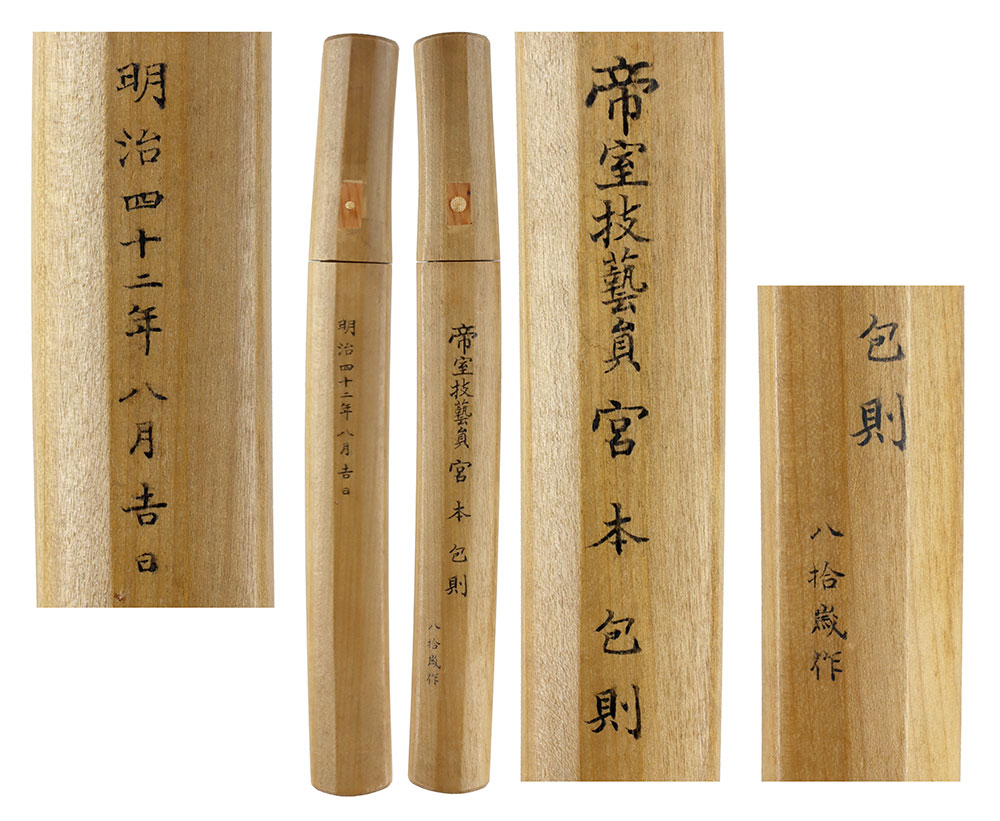 明治四十二年八月吉日
明治四十二年八月吉日
帝室技藝員宮本包則
八拾歳作
帝室技藝員宮本包則
包則
八拾歳作